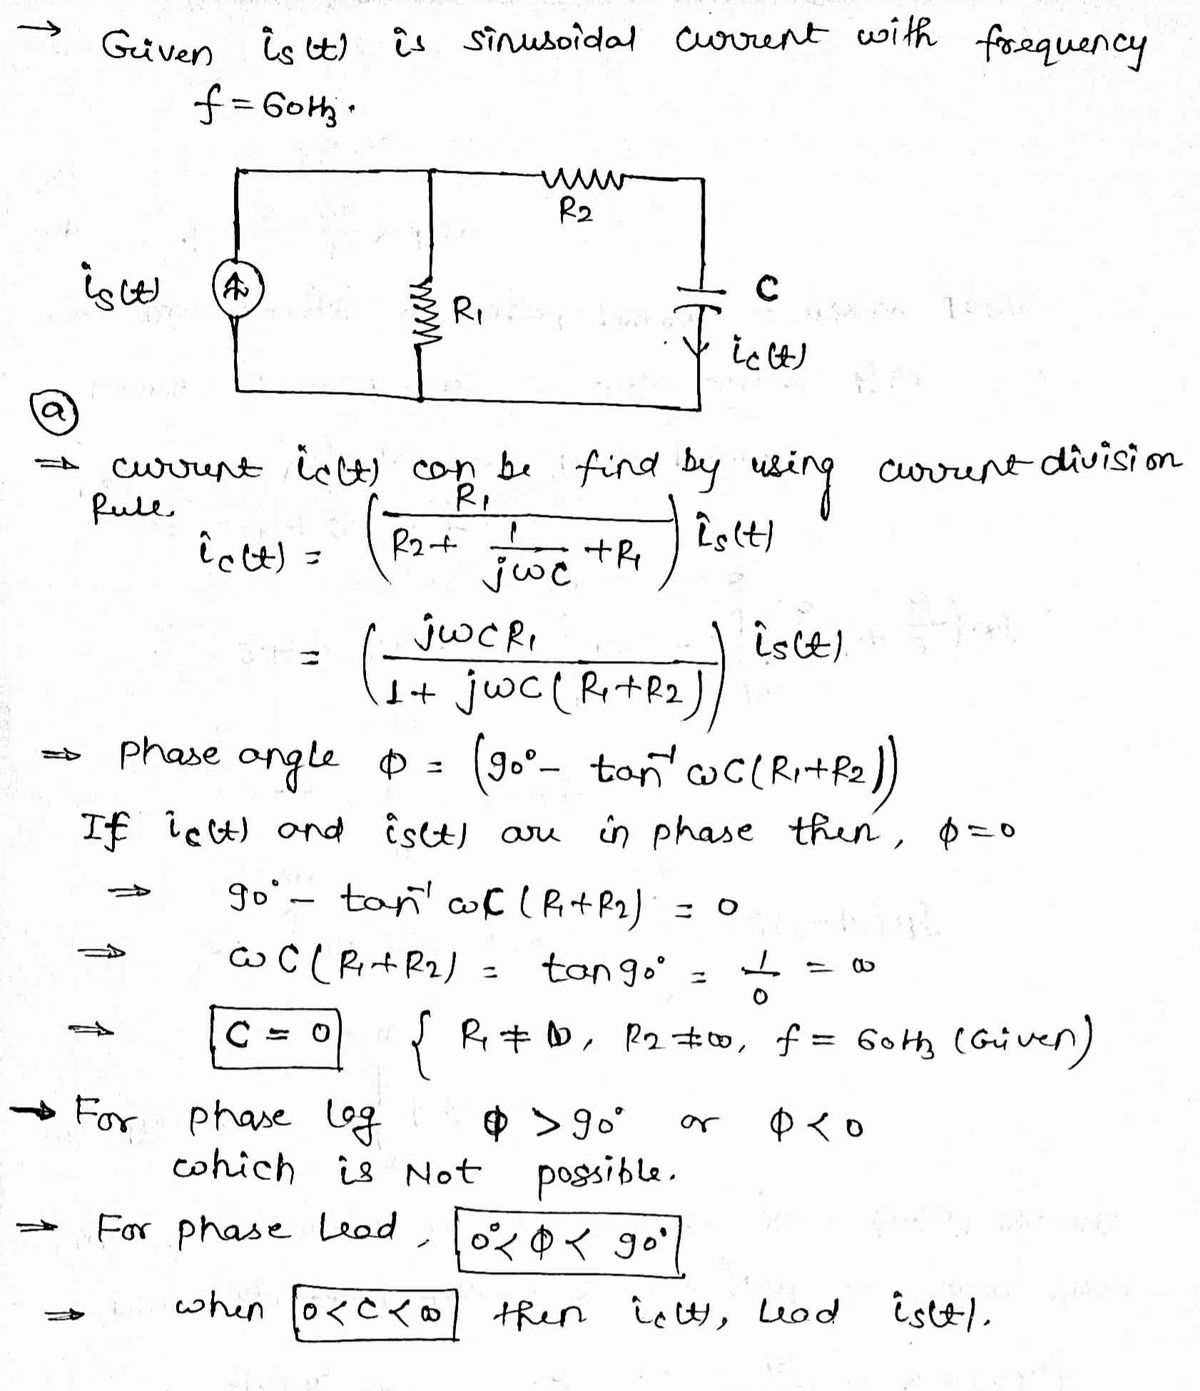 → Given is(t) is sinusoidal current with frequency
f = 60Hz.
R2
is(t)
R1
C
ic(t)
(a)
⇒ current ic(t) can be find by using current division
Rule.
ic(t) = (R1 / (R2 + 1/jωC + R1)) is(t)
= (jωCR1 / (1 + jωC(R1+R2))) is(t)
⇒ phase angle ϕ = (90° - tan⁻¹ ωC(R1+R2))
If ic(t) and is(t) are in phase then, ϕ=0
⇒ 90° - tan⁻¹ ωC(R1+R2) = 0
⇒ ωC(R1+R2) = tan90° = 1/0 = ∞
⇒ C = 0 { R1 ≠ ∞, R2 ≠ ∞, f = 60Hz (Given)
→ For phase log ϕ > 90° or ϕ < 0
which is Not possible.
⇒ For phase Lead, 0° < ϕ < 90°
⇒ when 0 < C < ∞ then ic(t), Lead is(t).